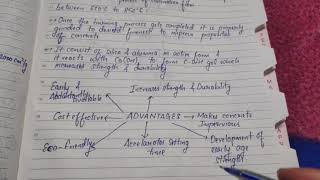 between 650°C to 850°C.
→ Once the burning process gets completed it is properly
grinded to desired fineness to improve properties
of concrete.
→ It consist of silica & alumina in active form &
it reacts with Ca(OH)₂ to form C-S-H gel which
increases strength & durability.
Easily &
available
Increases strength & Durability
Cost effective
ADVANTAGES
Makes concrete
Impervious
Eco-friendly
Accelerates setting
time
Development of
early age
strength